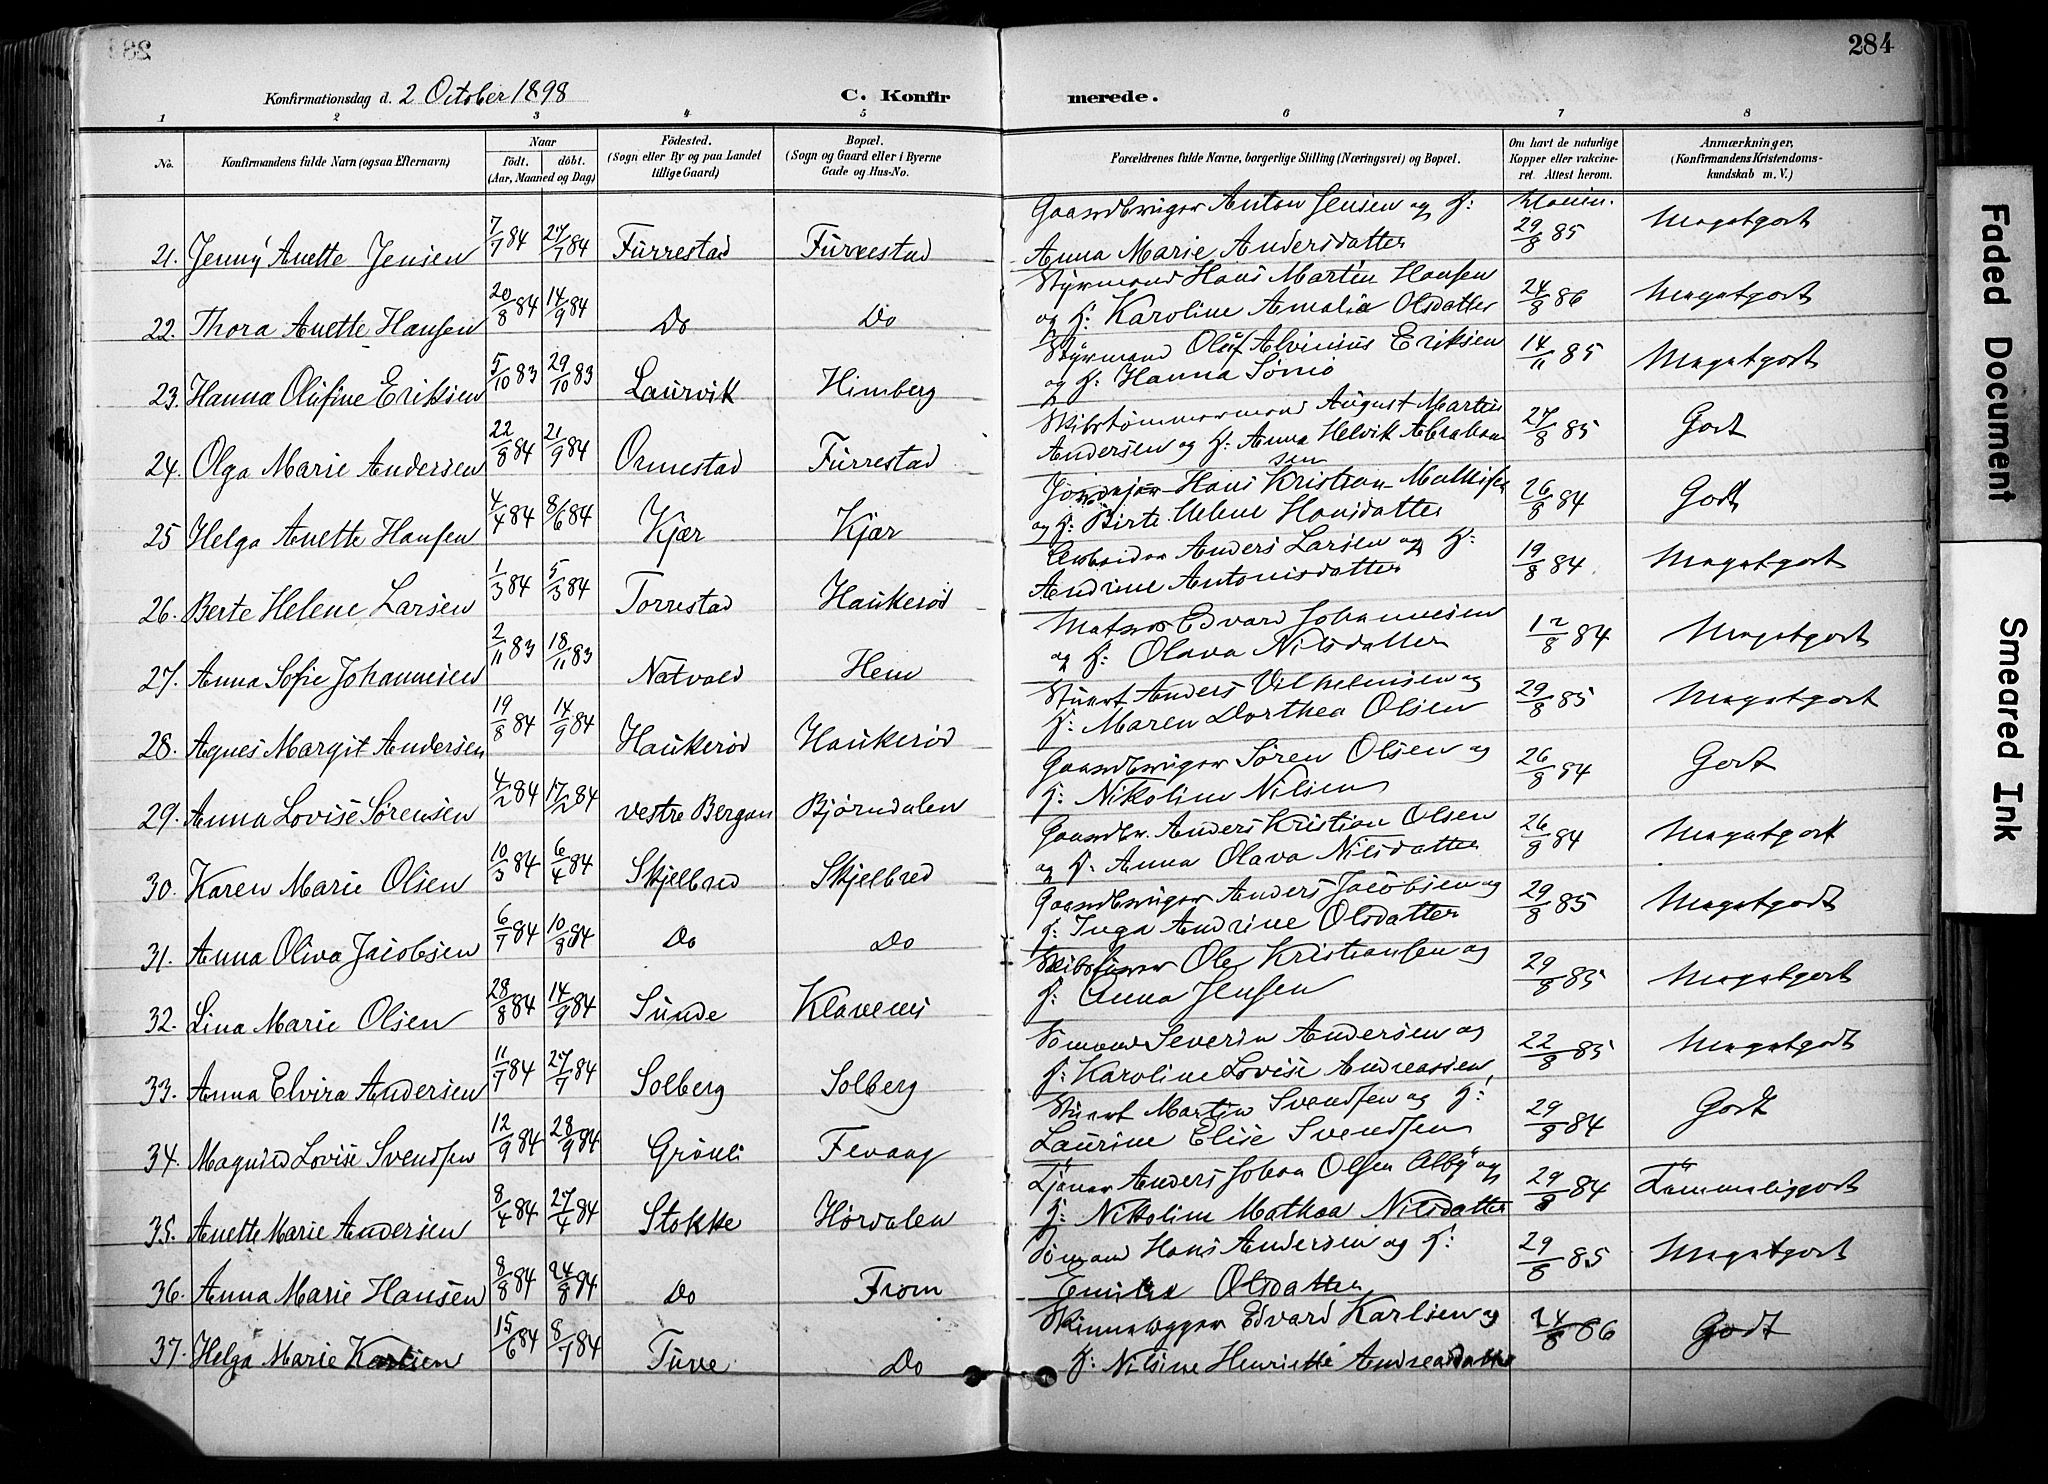 284
Konfirmationsdag d. 2 October 1898
C. Konfirmerede.
1 2 3 4 5 6 7 8
No.
Konfirmandens fulde Navn (ogsaa Efternavn)
Naar
födt. döbt.
(Aar, Maaned og Dag)
Födested.
(Sogn eller By og paa Landet
tillige Gaard)
Bopæl.
(Sogn og Gaard eller i Byerne
Gade og Hus-No.
Forældrenes fulde Navne, borgerlige Stilling (Næringsvei) og Bopæl.
Om havt de naturlige
Kopper eller vaccine-
ret. Attest herom.
Anmærkninger,
(Konfirmandens Kristendoms-
kundskab m. V.)
21. Jenny Anette Jensen 7/7 84 27/7 84 Furrestad Furrestad Gaardbruger Anton Jensen og H:
Anna Marie Andersdatter 29/8 85 Megetgodt
22. Thora Anette Hansen 20/8 84 14/9 84 Do Do Styrmand Hans Martin Hansen
og H: Karoline Amalia Olsdatter 24/8 86 Megetgodt
23. Hanna Olufine Eriksen 5/10 83 29/10 83 Laurvik Himberg Styrmand Oluf Alvinius Eriksen
og H: Hanna Sønio 14/11 85 Megetgodt
24. Olga Marie Andersen 22/8 84 21/9 84 Ormestad Furrestad Skibstømmermand August Martin
Andersen og H: Anna Helvik Abraham
sen 27/8 85 Godt
25 Helga Anette Hansen 4/4 84 8/6 84 Kjær Kjær Jordejer Hans Kristian Mathisen
og H: Birte Helene Hansdatter 26/8 84 Godt
26. Berte Helene Larsen 1/3 84 5/3 84 Torrestad Haukerød Arbeider Anders Larsen og H:
Andrine Antonisdatter 19/8 84 Megetgodt
27. Anna Sofie Johannesen 2/11 83 18/11 83 Natvald Hem Matros Edvard Johannesen
og H: Olava Nilsdatter 12/8 84 Megetgodt
28. Agnes Margit Andersen 19/8 84 14/9 84 Haukerød Haukerød Stuert Anders Vilhelmsen og
H: Maren Dorthea Olsen 29/8 85 Megetgodt
29. Anna Lovise Sørensen 4/2 84 17/2 84 vestre Bergan Bjørndalen Gaardbruger Søren Olsen og
H: Nikoline Nilsen 26/8 84 Godt
30. Karen Marie Olsen 10/3 84 6/4 84 Skjelbred Skjelbred Gaardbr. Anders Kristian Olsen
og H. Anna Olava Nilsdatter 26/8 84 Megetgodt
31. Anna Oliva Jacobsen 6/7 84 10/8 84 Do Do Gaardbruger Anders Jacobsen og
H: Inga Andrine Olsdatter 29/8 85 Megetgodt
32. Lina Marie Olsen 28/8 84 14/9 84 Sunde Klavenes Skibsfører Ole Kristiansen og
H: Anna Jensen 29/8 85 Megetgodt
33. Anna Elvira Andersen 11/7 84 27/7 84 Solberg Solberg Sømand Severin Andersen og
H: Karoline Lovise Andreassen 22/8 85 Megetgodt
34. Magnild Lovise Svendsen 12/9 84 28/9 84 Grønli Fevang Stuert Martin Svendsen og H:
Laurine Elise Svendsen 29/8 84 Godt
35. Anette Marie Andersen 8/4 84 27/4 84 Stokke Hørdalen Tjener Anders Johan Olsen Alby og
H: Nikoline Mathea Nilsdatter 29/8 84 Temmeliggodt
36. Anna Marie Hansen 8/8 84 24/8 84 Do From Sømand Hans Andersen og H:
Emilie Olsdatter 29/8 85 Megetgodt
37. Helga Marie Karlsen 15/6 84 8/7 84 Tuve Do Skinnelægger Edvard Karlsen og
H: Nilsine Henriette Andreasdatter 24/8 86 Godt
Faded Document
Smeared Ink